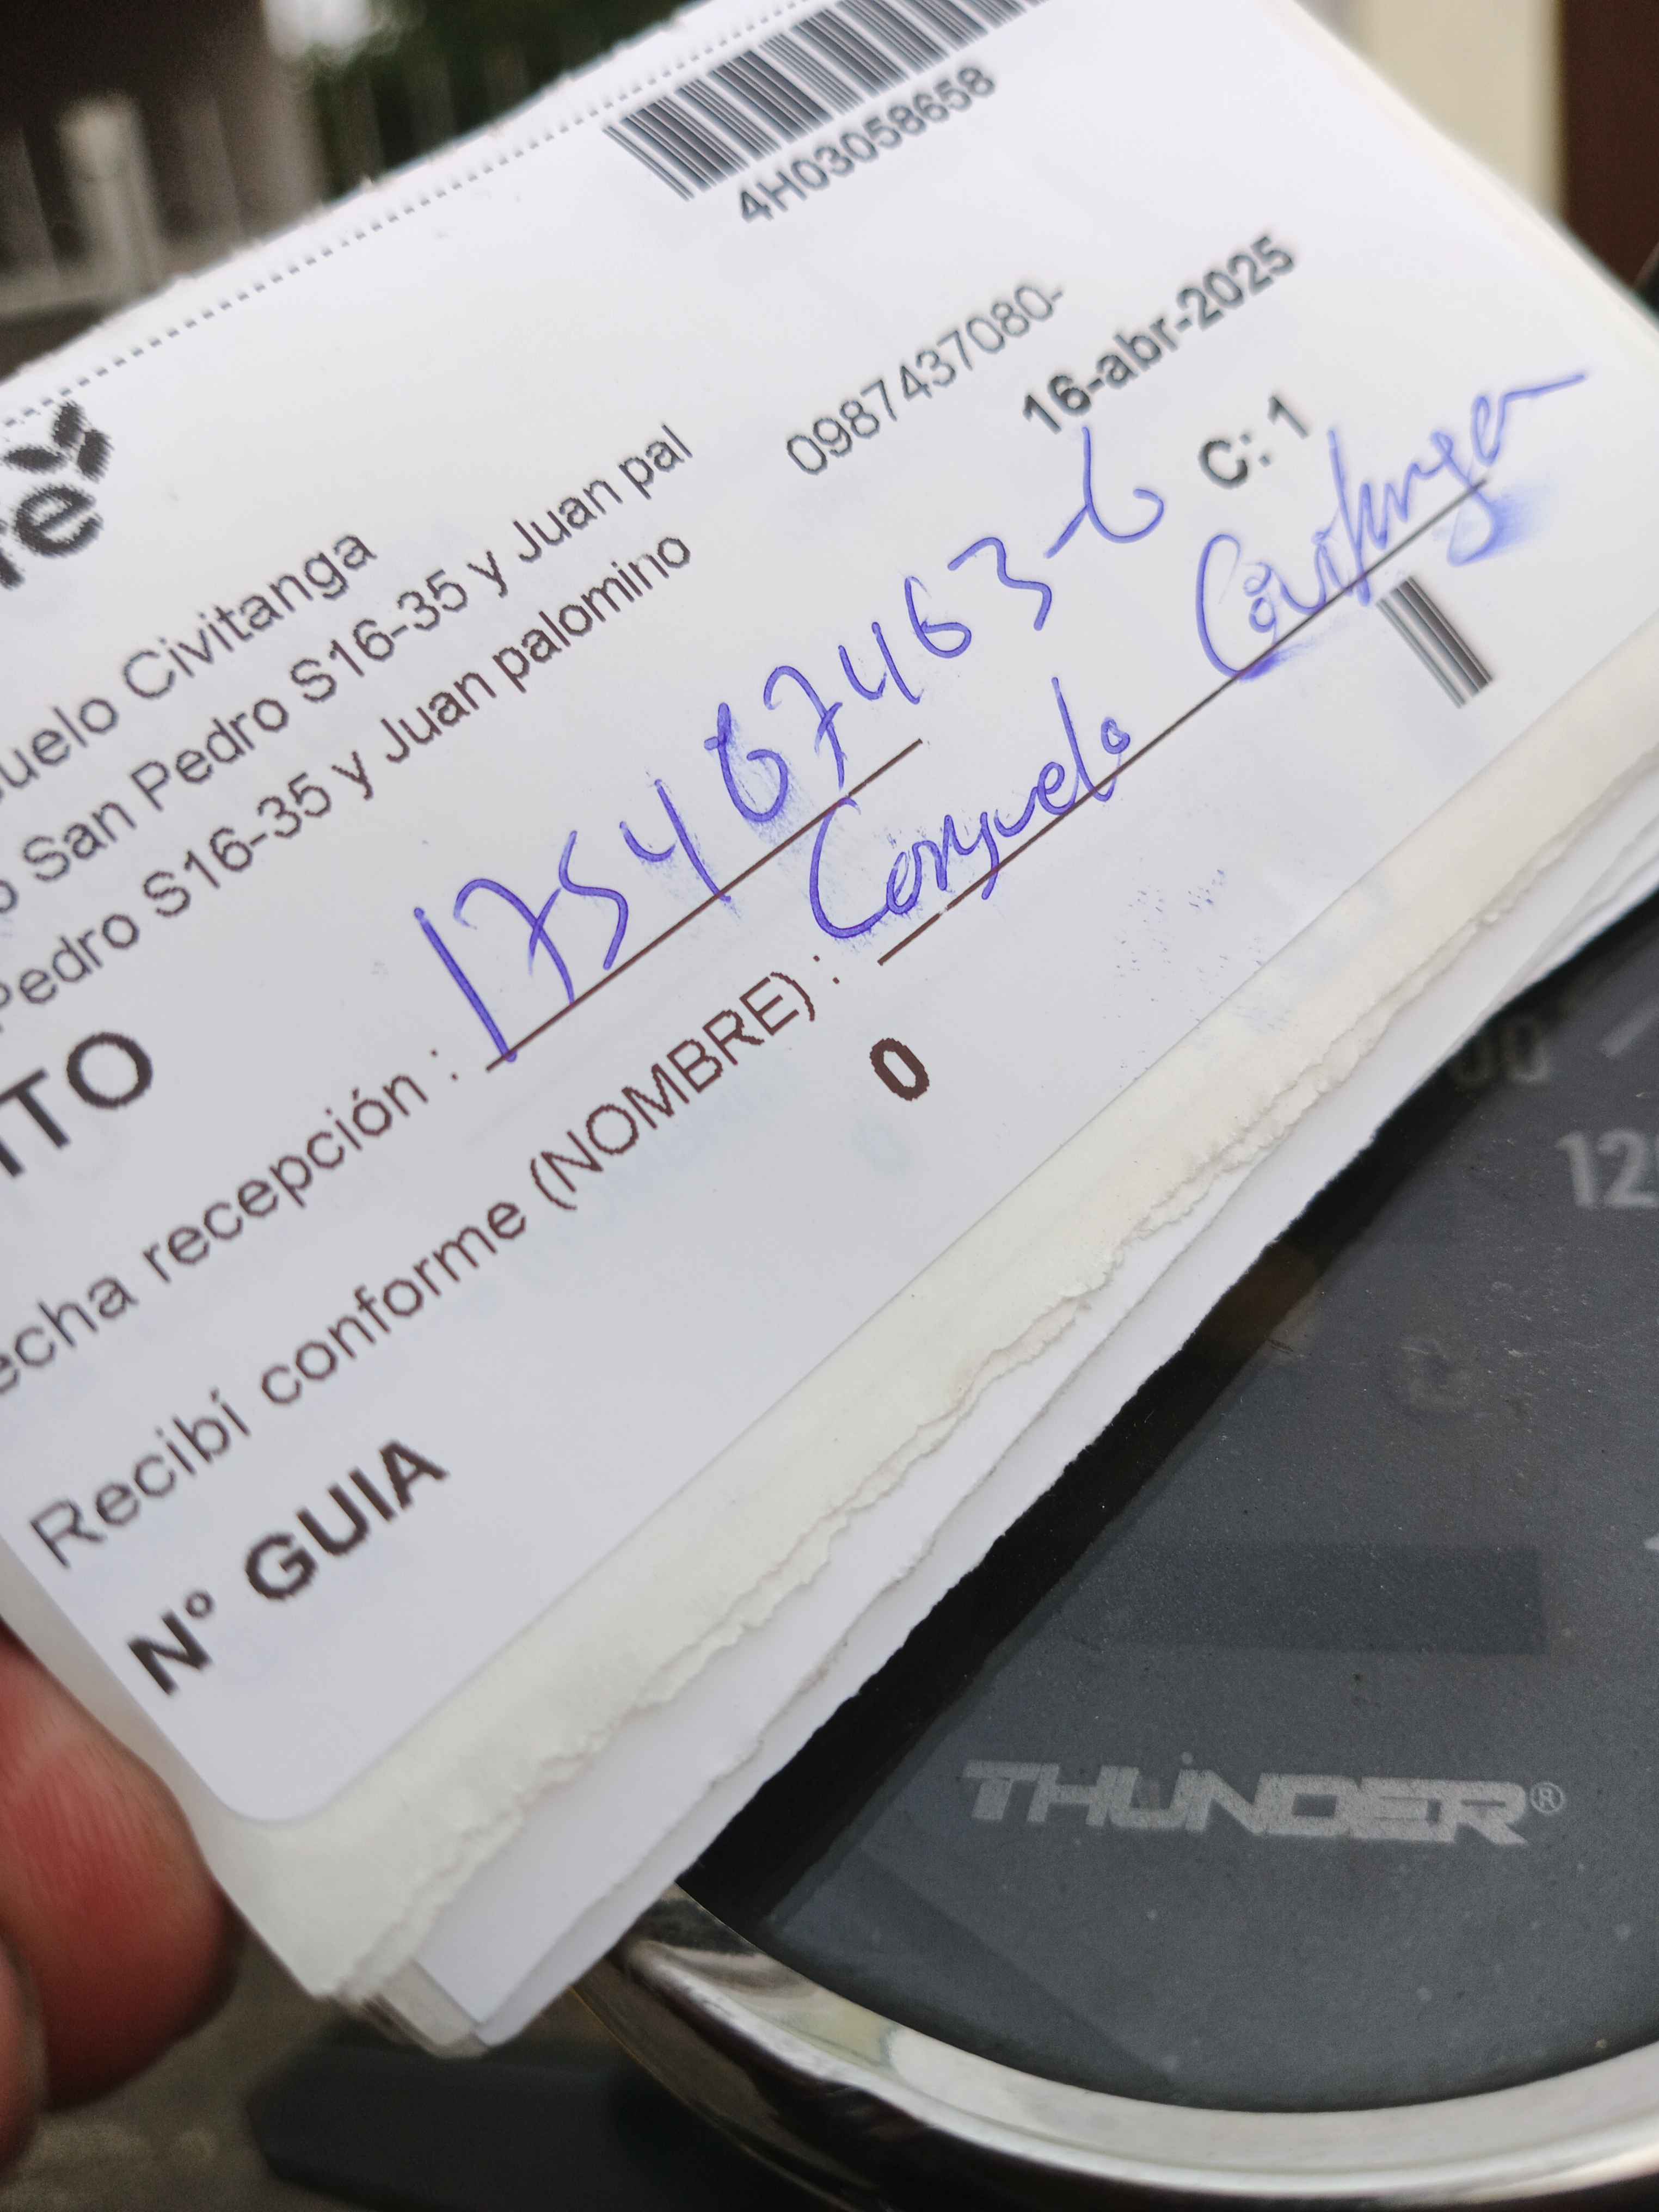 4H03058658
re
uelo Civitanga
0987437080-
San Pedro S16-35 y Juan pal
16-abr-2025
Pedro S16-35 y Juan palomino
C: 1
ITO
echa recepción : 175467463-6
Recibí conforme (NOMBRE) : Consuelo Civitanga
Nº GUIA 0
120
THUNDER®